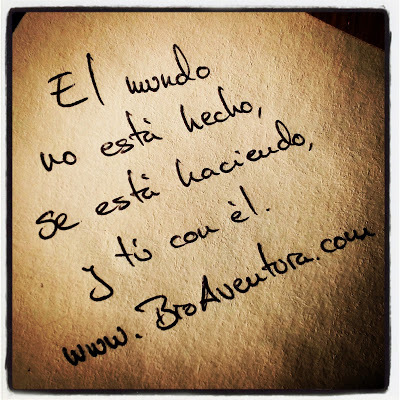 El mundo
no está hecho,
se está haciendo,
y tú con èl.
www.BroAventura.com